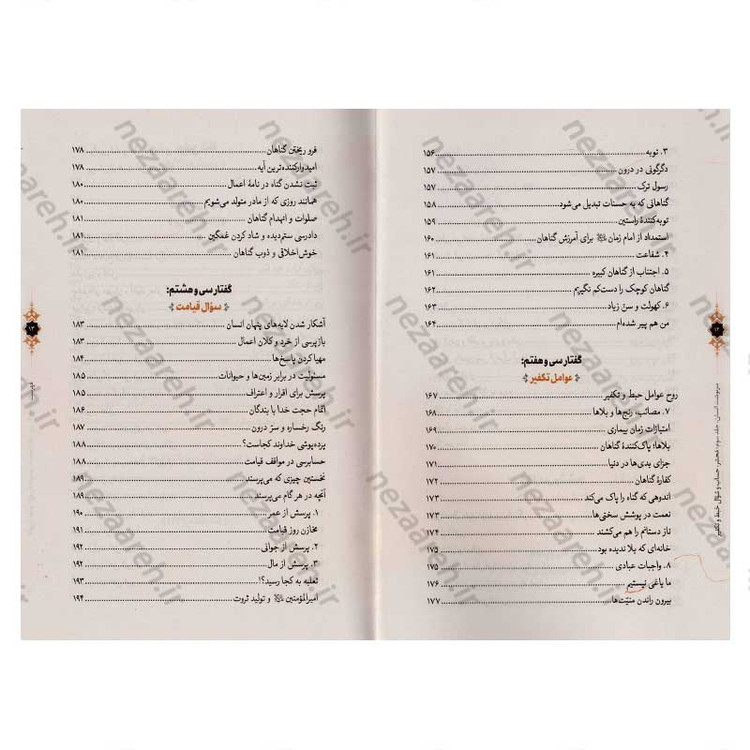 ۳. توبه ۱۵۶
دگرگونی در درون ۱۵۷
رسول ترک ۱۵۷
گناهانی که به حسنات تبدیل می‌شود ۱۵۸
توبه‌کنندهٔ راستین ۱۵۹
استمداد از امام زمان برای آمرزش گناهان ۱۶۰
۴. شفاعت ۱۶۱
۵. اجتناب از گناهان کبیره ۱۶۱
گناهان کوچک را دست‌کم نگیریم ۱۶۲
۶. کهولت و سنّ زیاد ۱۶۳
من هم پیر شده‌ام ۱۶۴
گفتار سی و هفتم:
عوامل تکفیر
روح عوامل حبط و تکفیر ۱۶۷
۷. مصائب، رنج‌ها و بلاها ۱۶۸
امتیازات زمان بیماری ۱۶۹
بلاها؛ پاک‌کنندهٔ گناهان ۱۷۰
جزای بدی‌ها در دنیا ۱۷۱
کفارهٔ گناهان ۱۷۲
اندوهی که گناه را پاک می‌کند ۱۷۳
نعمت در پوشش سختی‌ها ۱۷۳
ناز دستانم را هم می‌کشند ۱۷۴
خانه‌ای که بلا ندیده بود ۱۷۵
۸. واجبات عبادی ۱۷۵
ما یاغی نیستیم ۱۷۶
بیرون راندن منیّت‌ها ۱۷۷
سرنوشت انسان، جلد سوم: محشر، حساب و سؤال حبط و تکفیر
فرو ریختن گناهان ۱۷۸
امیدوارکننده‌ترین آیه ۱۷۸
ثبت نشدن گناه در نامهٔ اعمال ۱۸۰
همانند روزی که از مادر متولد می‌شویم ۱۸۰
صلوات و انهدام گناهان ۱۸۱
دادرسی ستم‌دیده و شاد کردن غمگین ۱۸۱
خوش‌اخلاقی و ذوب گناهان ۱۸۱
گفتار سی و هشتم:
سؤال قیامت
آشکار شدن لایه‌های پنهان انسان ۱۸۳
بازپرسی از خرد و کلان اعمال ۱۸۳
مهیا کردن پاسخ‌ها ۱۸۴
مسئولیت در برابر زمین‌ها و حیوانات ۱۸۵
پرسش برای اقرار و اعتراف ۱۸۵
اتمام حجت خدا با بندگان ۱۸۶
رنگ رخساره و سرّ درون ۱۸۷
پرده‌پوشی خداوند کجاست؟ ۱۸۸
حسابرسی در مواقف قیامت ۱۸۸
نخستین چیزی که می‌پرسند ۱۸۹
آنچه در هر گام می‌پرسند ۱۸۹
۱. پرسش از عمر ۱۹۰
مخازن روز قیامت ۱۹۱
۲. پرسش از جوانی ۱۹۲
۳. پرسش از مال ۱۹۲
ثعلبه به کجا رسید؟! ۱۹۳
امیرالمؤمنین و تولید ثروت ۱۹۴
۱۳
فهرست
nezaareh.ir